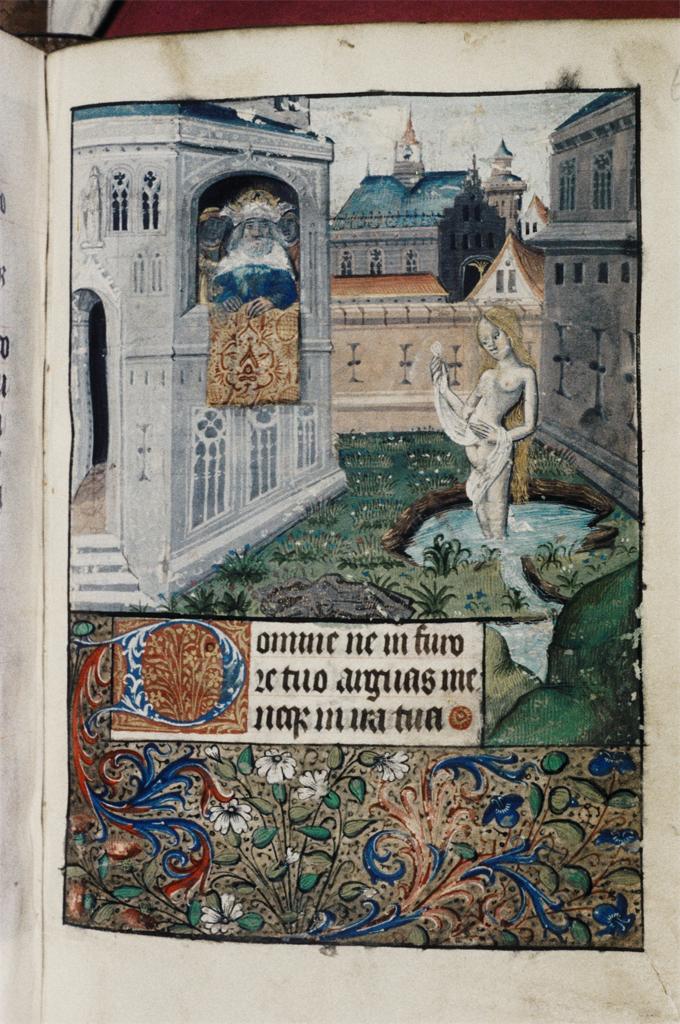 Domine ne in furo
re tuo arguas me
neqꝫ in ira tua